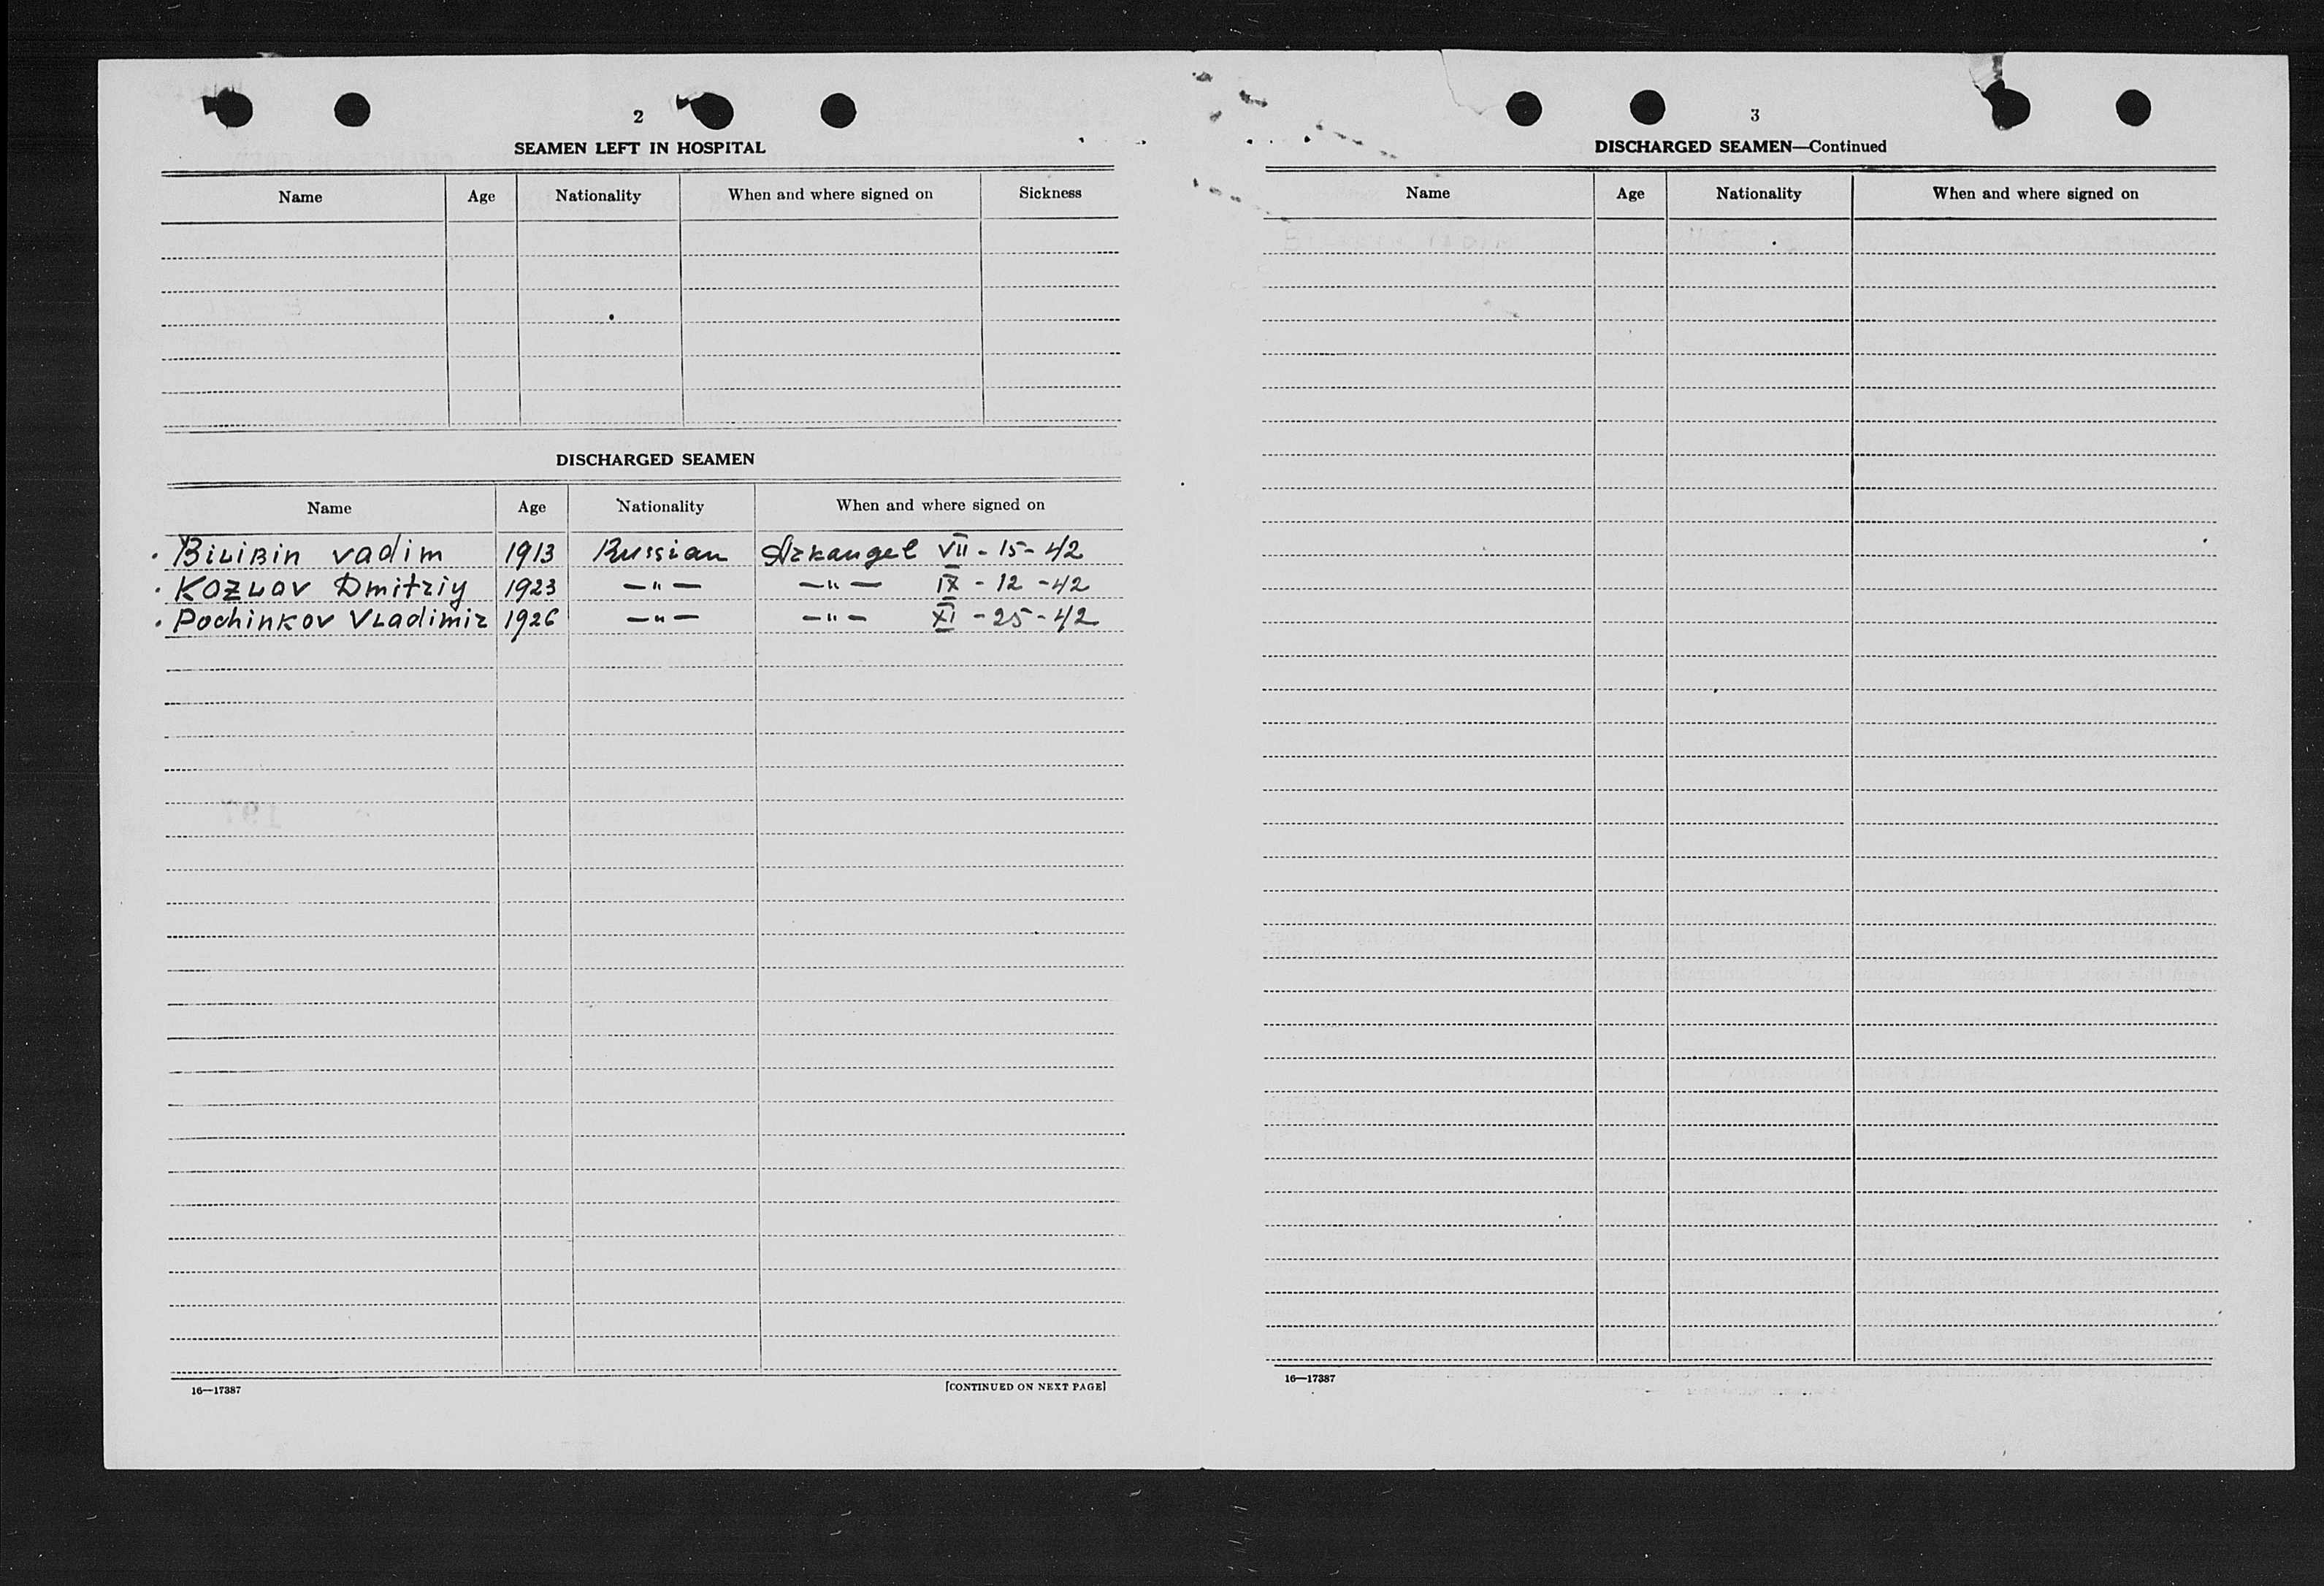 2
SEAMEN LEFT IN HOSPITAL
Name Age Nationality When and where signed on Sickness
DISCHARGED SEAMEN
Name Age Nationality When and where signed on
Bilibin vadim 1913 Russian Arkangel VII - 15 - 42
Kozlov Dmitriy 1923 —"— —"— IX - 12 - 42
Pochinkov Vladimir 1926 —"— —"— XI - 25 - 42
16—17387 [CONTINUED ON NEXT PAGE]
3
DISCHARGED SEAMEN—Continued
Name Age Nationality When and where signed on
16—17387